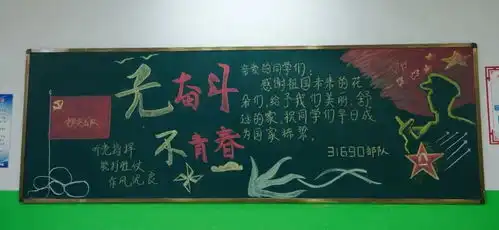 无奋斗
不青春
听党指挥
能打胜仗
作风优良
亲爱的同学们:
感谢祖国未来的花
朵们,给予我们美丽、舒
适的家,祝同学们早日成
为国家栋梁。
31690部队